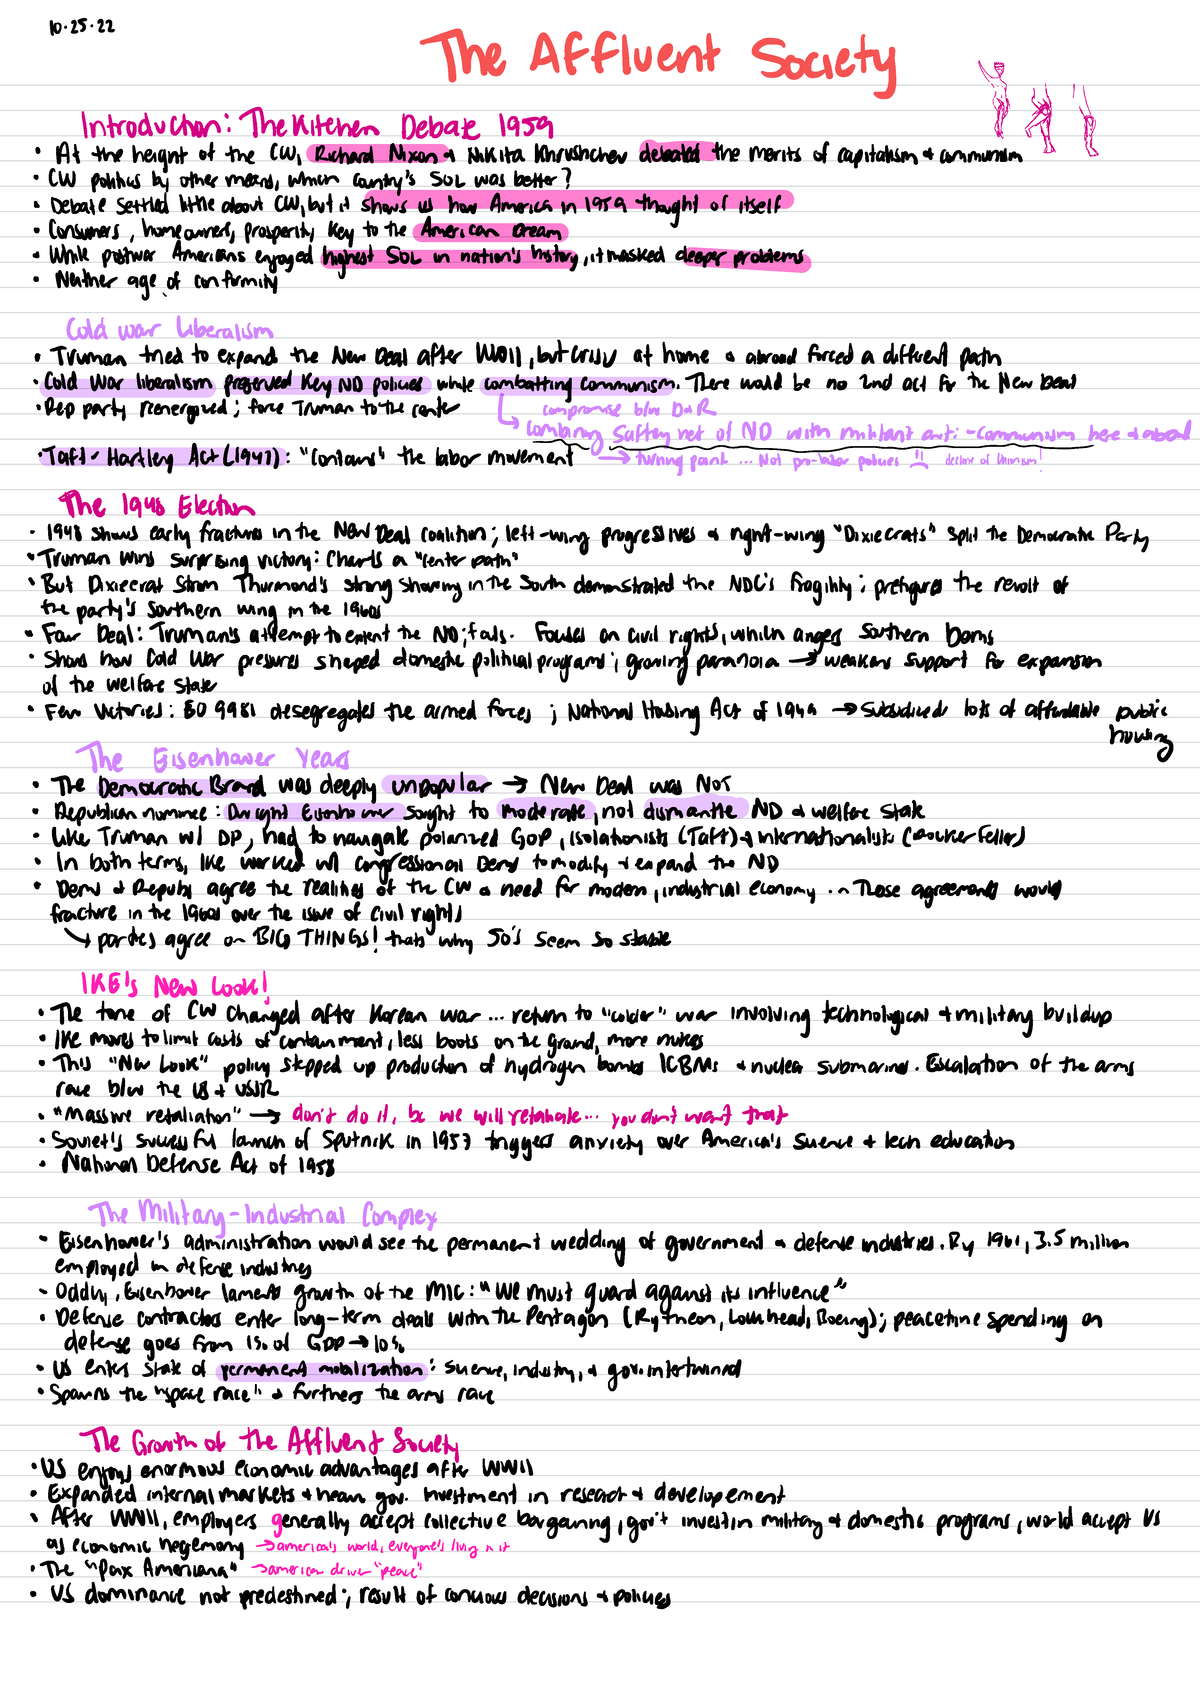 10.25.22
The Affluent Society
Introduction: The Kitchen Debate 1959
• At the height of the CW, Richard Nixon & Nikita Khrushchev debated the merits of capitalism & communism
• CW politics by other means, which country's SOL was better?
• Debate settled little about CW, but it shows us how America in 1959 thought of itself
• Consumers, homeowners, prosperity key to the American Dream
• While postwar Americans enjoyed highest SOL in nation's history, it masked deeper problems
• Neither age of conformity
Cold war Liberalism
• Truman tried to expand the New Deal after WWII, but crisis at home & abroad forced a different path
• Cold War liberalism preserved key ND policies while combatting communism. There would be no 2nd act for the New Deal
• Rep party reenergized; force Truman to the center
compromise b/w D & R
↳ combining saftey net of ND with militant anti-communism here & abroad
• Taft-Hartley Act (1947): "contains" the labor movement → turning point ... Not pro-labor policies decline of Unionism!
The 1948 Election
• 1948 shows early fractures in the New Deal coalition; left-wing progressives & right-wing "Dixiecrats" split the Democratic Party
• Truman wins surprising victory: Charts a "center path"
• But Dixiecrat Strom Thurmond's strong showing in the South demonstrated the NDC's fragility; prefigures the revolt of
the party's southern wing in the 1960s
• Fair Deal: Truman's attempt to extent the ND; fails. Focuses on civil rights, which angers Southern Dems
• Shows how Cold War pressures shaped domestic political programs; growing paranoia → weakens support for expansion
of the welfare state
• Few Victories: EO 9981 desegregates the armed forces; National Housing Act of 1949 → subsidized lots of affordable public
housing
The Eisenhower Years
• The Democratic Brand was deeply unpopular → New Deal was NOT
• Republican nominee: Dwight Eisenhower sought to moderate, not dismantle ND & welfare state
• Like Truman w/ DP, had to navigate polarized GOP, isolationists (Taft) & internationalists (Rockerfeller)
• In both terms, Ike worked w/ congressional Dems to modify & expand the ND
• Dems & Repubs agree the realities of the CW & need for modern, industrial economy. These agreements would
fracture in the 1960s over the issue of civil rights
↳ parties agree on BIG THINGS! thats why 50's seem so stable
IKE's New Look!
• The tone of CW changed after Korean war ... return to "colder" war involving technological & military buildup
• Ike moves to limit costs of containment, less boots on the ground, more nukes
• This "New Look" policy stepped up production of hydrogen bombs ICBMs & nuclear submarines. Escalation of the arms
race b/w the US & USSR
• "Massive retaliation" → don't do it, bc we will retaliate... you don't want that
• Soviet's successful launch of Sputnik in 1957 triggers anxiety over America's science & tech education
• National Defense Act of 1958
The Military-Industrial Complex
• Eisenhower's administration would see the permanent wedding of government & defense industries. By 1961, 3.5 million
employed in defense industries
- Oddly, Eisenhower laments growth of the MIC: "We must guard against its influence"
• Defense contractors enter long-term deals with the Pentagon (Rytheon, Lockhead, Boeing); peacetime spending on
defense goes from 1% of GDP → 10%
• US enters state of permanent mobilization: science, industry, & gov. intertwined
• Spawns the "space race" & furthers the arms race
The Growth of the Affluent Society
• US enjoys enormous economic advantages after WWII
• Expanded internal markets & heavy gov. investment in reseact & developement
• After WWII, employers generally accept collective bargaining, gov't invest in military & domestic programs, world accept US
as economic hegemony → america's world, everyone's living in it
• The "Pax Americana" → american driven "peace"
• US dominance not predestined; result of concious decisions & policies